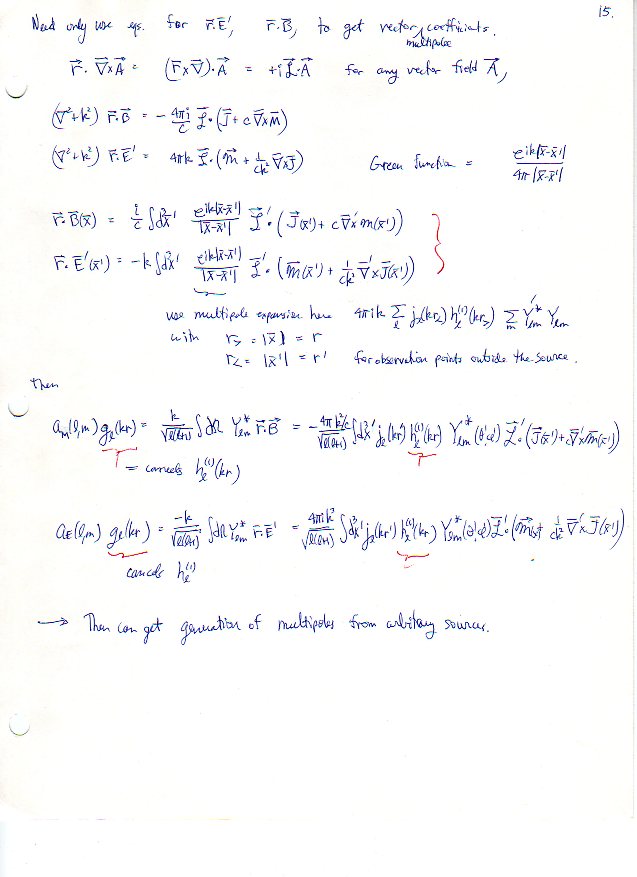 15.
Need only use eqs. for r⃗·E⃗', r⃗·B⃗, to get vector multipole coefficients.
r⃗·∇⃗×A⃗ = (r⃗×∇⃗)·A⃗ = +iℒ⃗·A⃗ for any vector field A⃗,
(∇²+k²) r⃗·B⃗ = -4πi/c ℒ⃗·(J⃗+c∇⃗×m⃗)
(∇²+k²) r⃗·E⃗' = 4πk ℒ⃗·(m⃗+1/ck² ∇⃗×J⃗) Green function = e^{ik|x̄-x̄'|}/4π|x̄-x̄'|
r⃗·B⃗(x̄) = i/c ∫d³x' e^{ik|x̄-x̄'|}/|x̄-x̄'| ℒ⃗'·(J⃗(x̄')+c∇⃗'×m(x̄'))
r⃗·E⃗'(x̄') = -k∫d³x' e^{ik|x̄-x̄'|}/|x̄-x̄'| ℒ⃗'·(m⃗(x̄')+1/ck² ∇⃗'×J⃗(x̄'))
use multipole expansion here 4πik Σ_l j_l(kr<) h_l^{(1)}(kr>) Σ_m Y_lm'* Y_lm
with r> = |x̄| = r
r< = |x̄'| = r' for observation points outside the source.
Then
a_m(l,m) g_l(kr) = k/√l(l+1) ∫dΩ Y_lm* r⃗·B⃗ = -4πk²/c/√l(l+1) ∫d³x' j_l(kr') h_l^{(1)}(kr) Y_lm*(θ',φ') ℒ⃗'·(J⃗(x̄')+c∇⃗'×m(x̄'))
= cancels h_l^{(1)}(kr)
a_E(l,m) g_l(kr) = -k/√l(l+1) ∫dΩ Y_lm* r⃗·E⃗' = 4πik²/√l(l+1) ∫d³x' j_l(kr') h_l^{(1)}(kr) Y_lm*(θ',φ') ℒ⃗'·(m⃗(x̄')+1/ck² ∇⃗'×J⃗(x̄'))
cancels h_l^{(1)}
→ Then can get generation of multipoles from arbitrary sources.